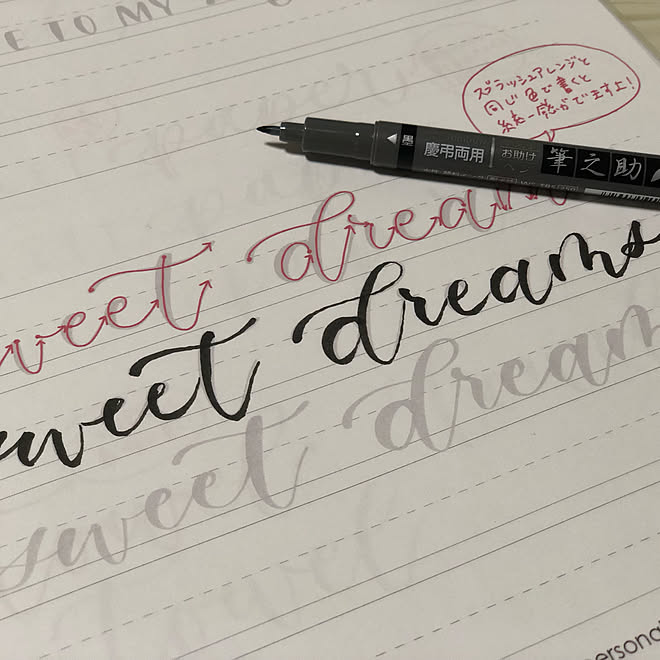 E TO MY
スプラッシュアレンジと
同じ色で書くと
統一感がでますよ!
墨 慶弔両用 お助けペン 筆之助
weet dream
sweet dreams
sweet dream
ersona